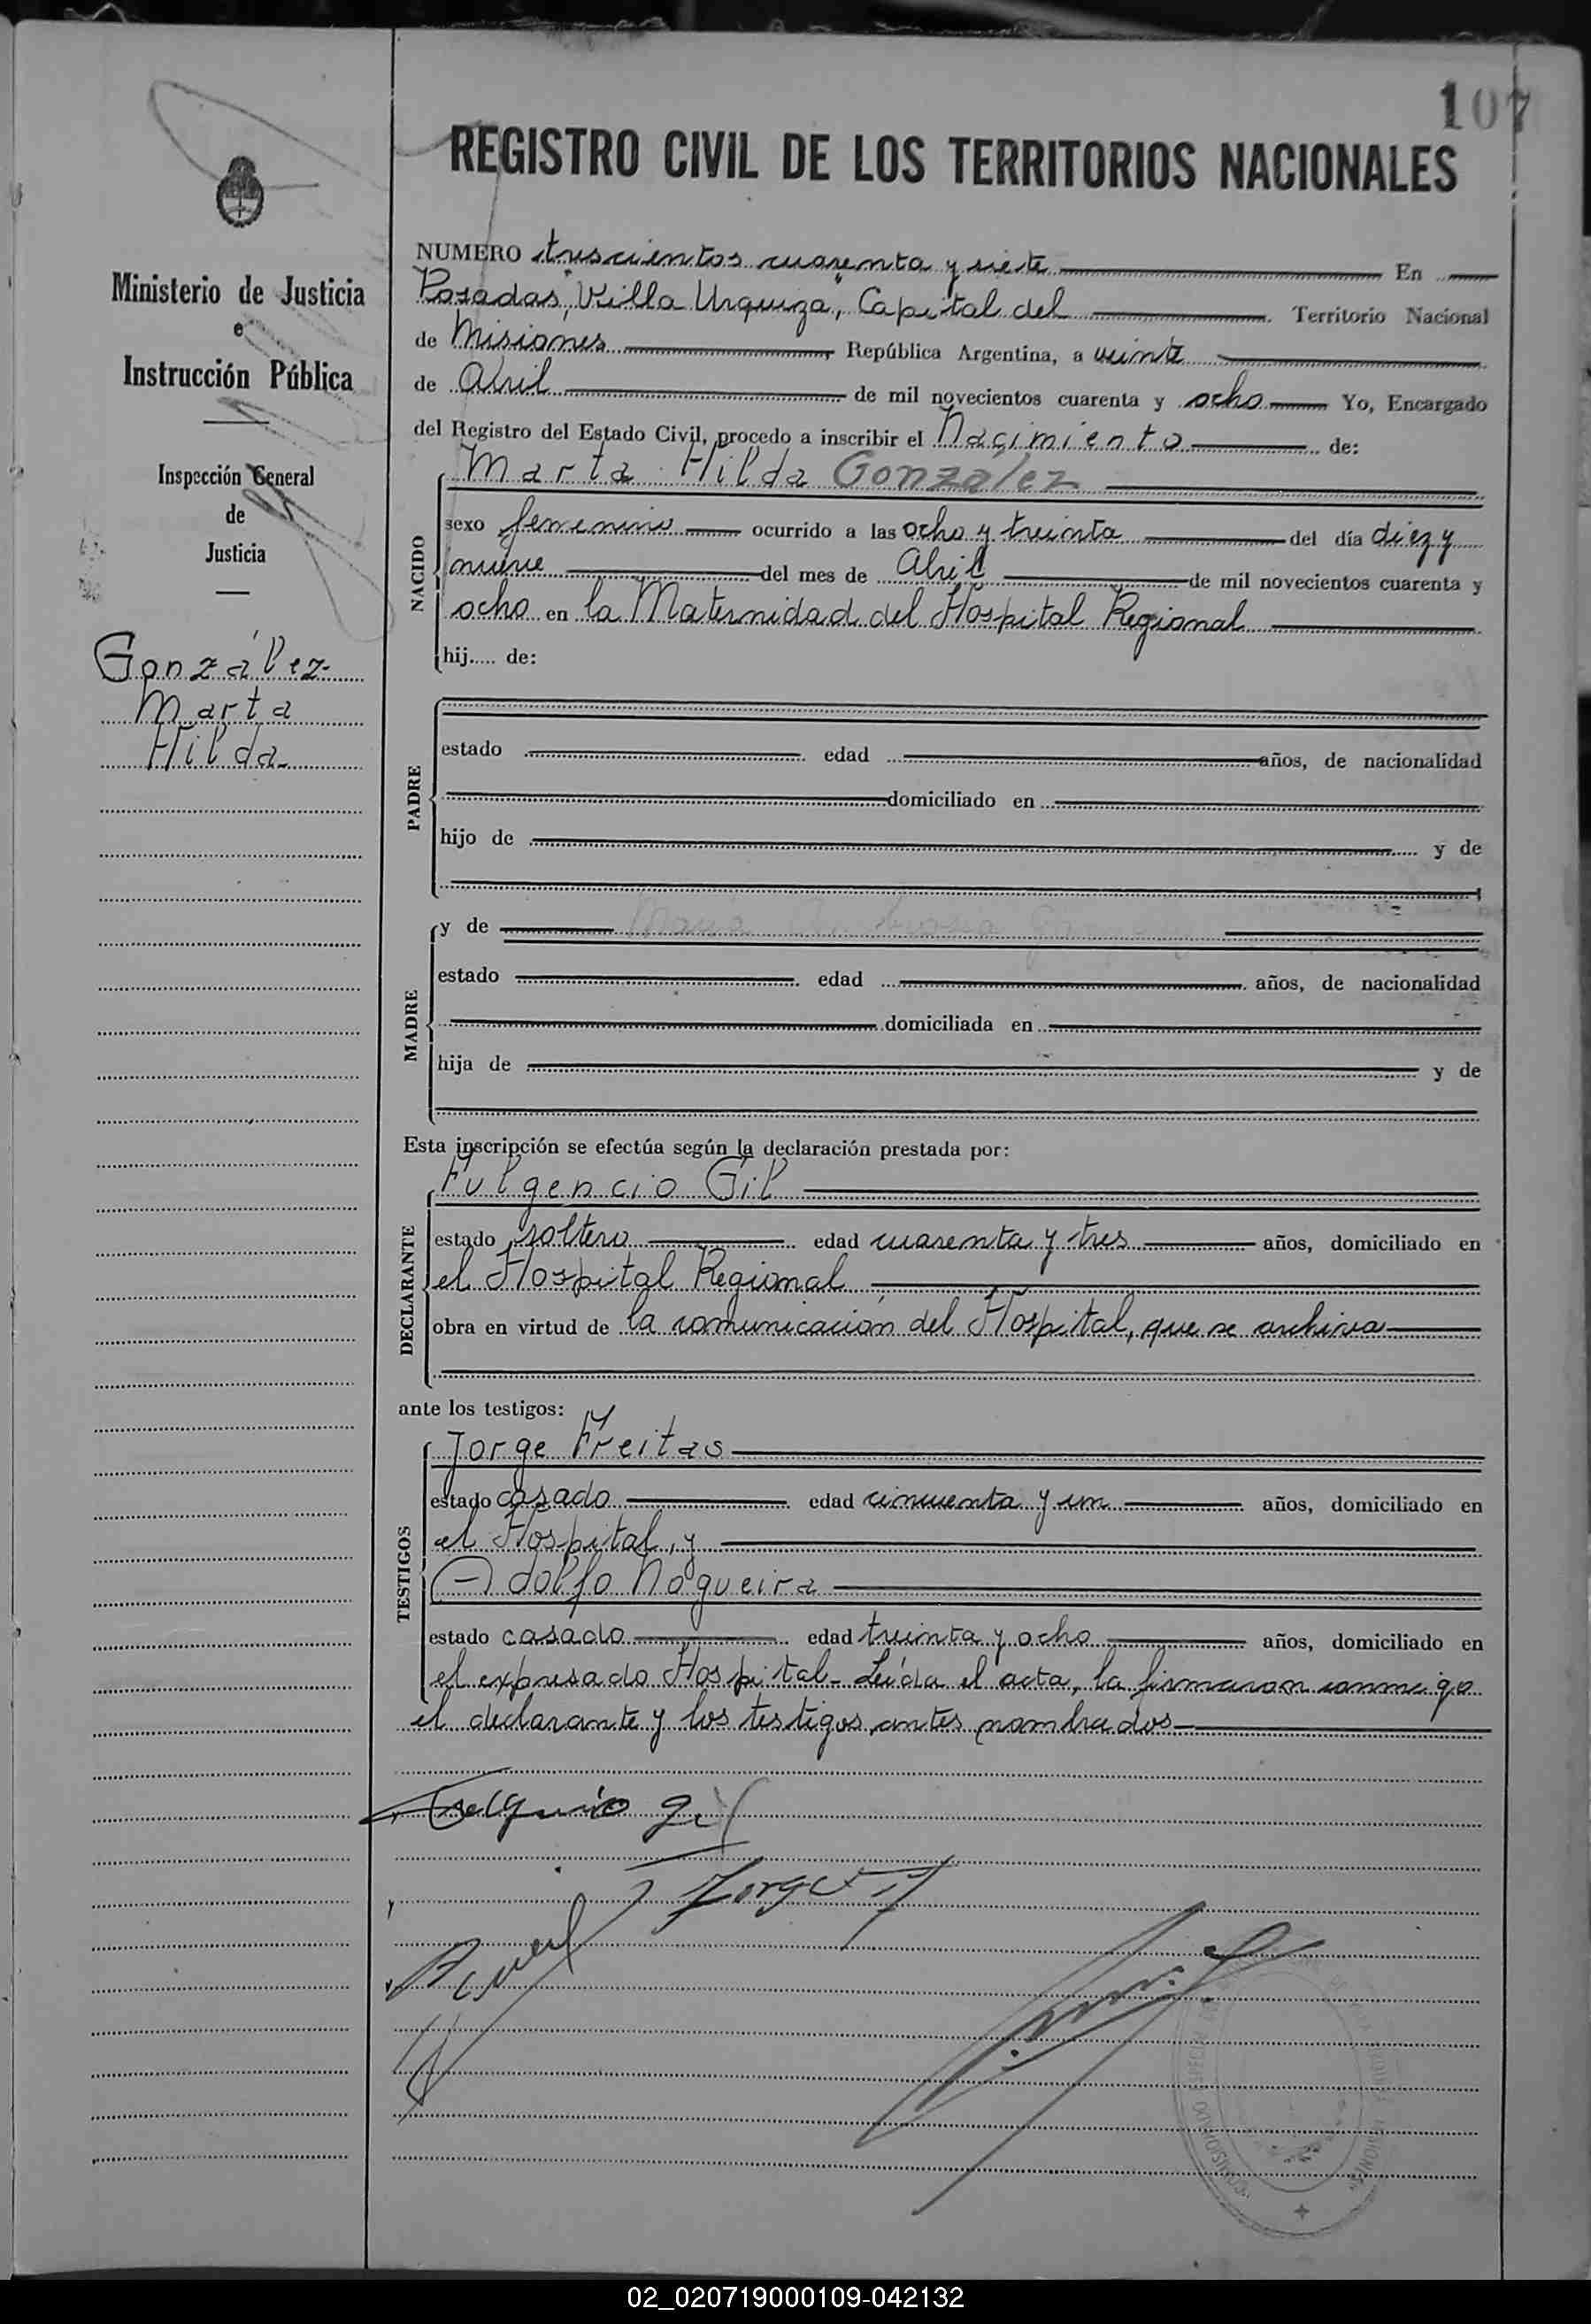 107
REGISTRO CIVIL DE LOS TERRITORIOS NACIONALES
Ministerio de Justicia
e
Instrucción Pública
Inspección General
de
Justicia
González
Marta
Hilda
NUMERO trescientos cuarenta y siete En
Posadas, "Villa Urquiza", Capital del Territorio Nacional
de Misiones República Argentina, a veinte
de Abril de mil novecientos cuarenta y ocho Yo, Encargado
del Registro del Estado Civil, procedo a inscribir el Nacimiento de:
Marta Hilda González
NACIDO
sexo femenino ocurrido a las ocho y treinta del día diez y
nueve del mes de Abril de mil novecientos cuarenta y
ocho en la Maternidad del Hospital Regional
hij..... de:
PADRE
estado edad años, de nacionalidad
domiciliado en
hijo de y de
MADRE
y de María
estado edad años, de nacionalidad
domiciliada en
hija de y de
Esta inscripción se efectúa según la declaración prestada por:
DECLARANTE
Fulgencio Gil
estado soltero edad cuarenta y tres años, domiciliado en
el Hospital Regional
obra en virtud de la comunicación del Hospital, que se archiva
ante los testigos:
TESTIGOS
Jorge Freitas
estado casado edad cincuenta y un años, domiciliado en
el Hospital, y
Adolfo Nogueira
estado casado edad treinta y ocho años, domiciliado en
el expresado Hospital - Leída el acta, la firmaron conmigo
el declarante y los testigos antes nombrados
Gil
Jorge
02_020719000109-042132